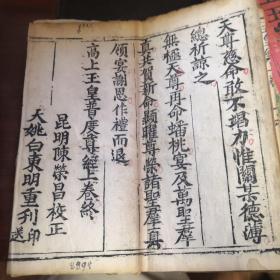 天尊慈命敢不竭力惟闡其德溥
總祈諒之
無極天尊再命蟠桃宴及萬聖羣
真共賀新命顯耀尊榮諸聖羣真
領宴謝恩作禮而退
高上王皇普度尊經上卷終
昆明陳榮昌校正
大姚白東明重刊印
送